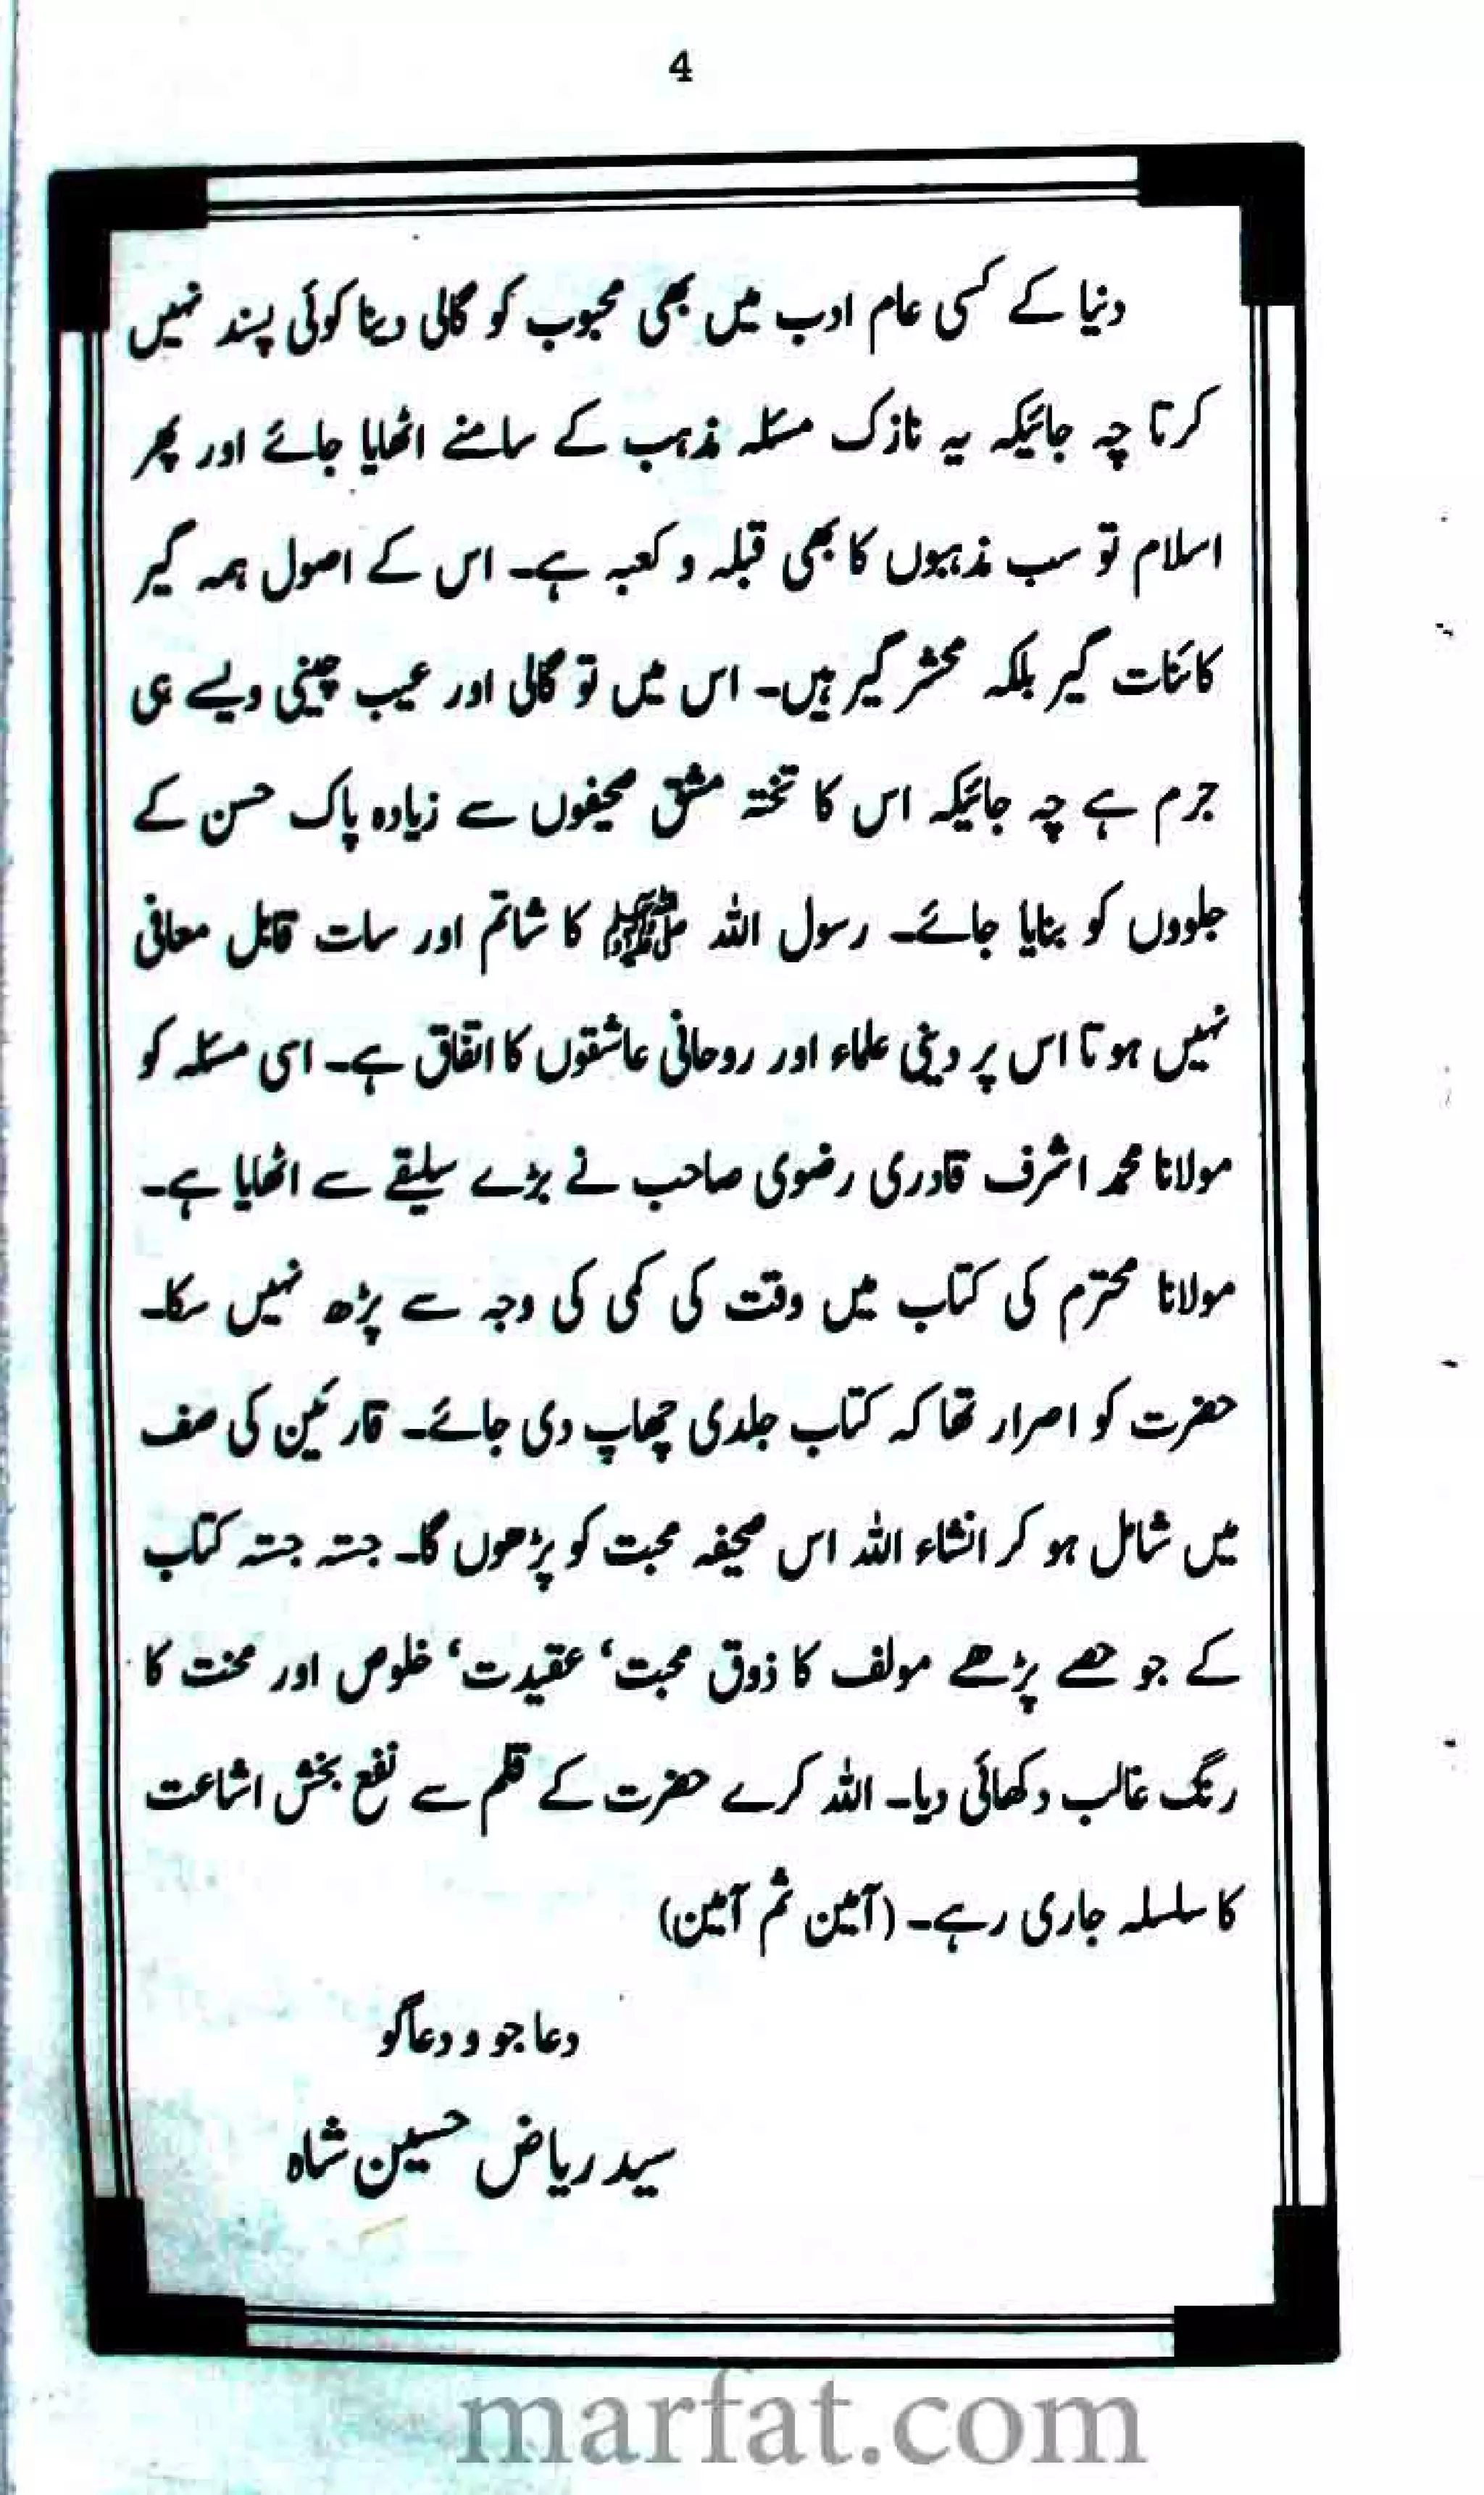 4
دنیا کے کسی عام ادب میں بھی محبوب کو گالی دینا کوئی پسند نہیں
کرتا چہ جائیکہ یہ نازک مسئلہ مذہب کے سامنے اٹھایا جائے اور پھر
اسلام تو سب مذہبوں کا بھی قبلہ و کعبہ ہے۔ اس کے اصول ہمہ گیر
کائنات گیر بلکہ محشر گیر ہیں۔ اس میں تو گالی اور عیب چینی ویسے ہی
جرم ہے چہ جائیکہ اس کا تختہ مشق صحیفوں سے زیادہ پاک حسن کے
جلووں کو بنایا جائے۔ رسول اللہ ﷺ کا شاتم اور سات قابل معافی
نہیں ہوتا اس پر دینی علماء اور روحانی عاشقوں کا اتفاق ہے۔ اسی مسئلہ کو
مولانا محمد اشرف قادری رضوی صاحب نے بڑے سلیقے سے اٹھایا ہے۔
مولانا محترم کی کتاب میں وقت کی کمی کی وجہ سے پڑھ نہیں سکا۔
حضرت کو اصرار تھا کہ کتاب جلدی چھاپ دی جائے۔ قارئین کی صف
میں شامل ہو کر انشاء اللہ اس صحیفہ محبت کو پڑھوں گا۔ جستہ جستہ کتاب
کے جو حصے پڑھے مولف کا ذوق محبت‘ عقیدت‘ خلوص اور محنت کا
رنگ غالب دکھائی دیا۔ اللہ کرے حضرت کے قلم سے نفع بخش اشاعت
کا سلسلہ جاری رہے۔ (آمین ثم آمین)
دعا جو و دعاگو
سید ریاض حسین شاہ
marfat.com